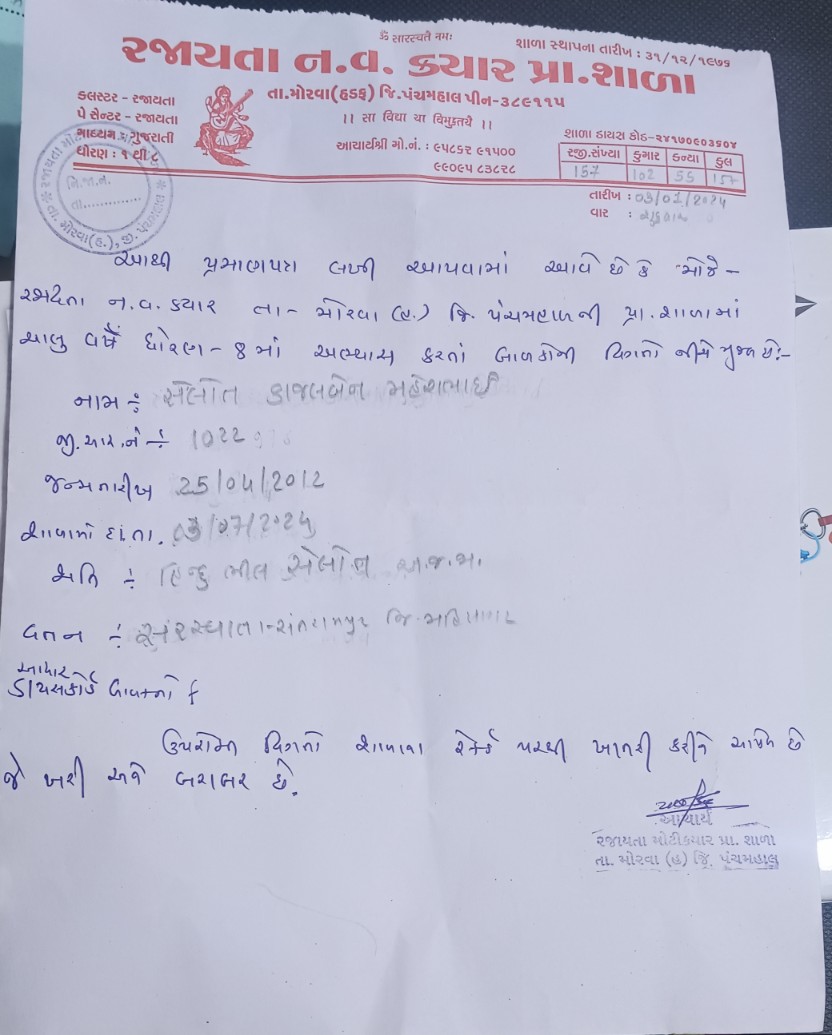 ૐ સારસ્વતૈ નમઃ
શાળા સ્થાપના તારીખ : ૩૧/૧૨/૧૯૭૧
રજાયતા ન.વ. ક્યાર પ્રા.શાળા
તા.મોરવા(હડફ) જિ.પંચમહાલ પીન-૩૮૯૧૧૫
કલસ્ટર - રજાયતા
પે સેન્ટર - રજાયતા
માધ્યમ : ગુજરાતી
ધોરણ : ૧ થી ૮
।। સા વિદ્યા યા વિમુક્તયૈ ।।
આચાર્યશ્રી મો.નં. : ૯૫૮૬૨ ૯૧૫૦૦
૯૯૦૯૫ ૮૩૮૨૮
શાળા ડાયસ કોડ-૨૪૧૭૦૯૦૩૬૦૪
રજી.સંખ્યા કુમાર કન્યા કુલ
157 102 55 157
તારીખ : 03/01/2024
વાર :
આથી પ્રમાણપત્ર લખી આપવામાં આવે છે કે મોજે -
ન.વ. ક્યાર તા - મોરવા (હ.) જિ. પંચમહાલની પ્રા. શાળામાં
ચાલુ વર્ષે ધોરણ - 8 માં અભ્યાસ કરતાં બાળકોની વિગતો નીચે મુજબ છે:-
નામ ÷ સેલોત કાજલબેન મહેશભાઈ
જી.આર.નં ÷ 1022
જન્મ તારીખ 25/04/2012
શાળામાં દા.તા. 03/07/2024
જાતિ ÷ હિન્દુ ભીલ સેલોત અ.જ.જા.
વતન ÷ સંતરામપુર જિ. મહિસાગર
આધાર
ડાયસકોર્ડ
ઉપરોક્ત વિગતો શાળાના રેકર્ડ પરથી ખાતરી કરીને આપેલ છે
જે ખરી અને બરાબર છે.
આચાર્ય
રજાયતા મોટીકયાર પ્રા. શાળા
તા. મોરવા (હ) જિ. પંચમહાલ